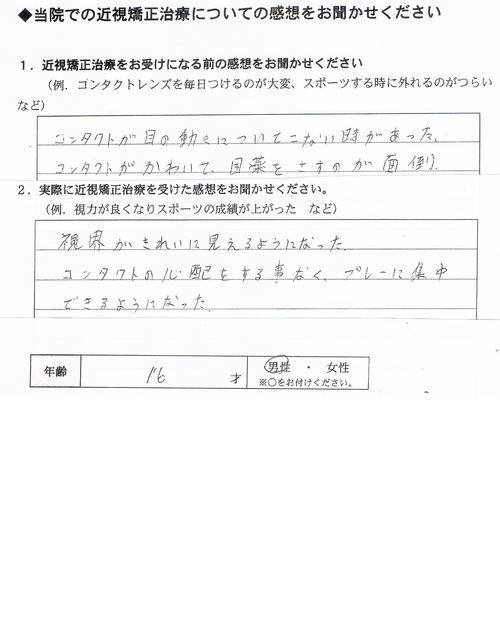 ◆当院での近視矯正治療についての感想をお聞かせください
1．近視矯正治療をお受けになる前の感想をお聞かせください
（例．コンタクトレンズを毎日つけるのが大変、スポーツする時に外れるのがつらい
など）
コンタクトが目の動きについてこない時があった、
コンタクトがかわいて、目薬をさすのが面倒。
2．実際に近視矯正治療を受けた感想をお聞かせください。
（例．視力が良くなりスポーツの成績が上がった　など）
視界がきれいに見えるようになった。
コンタクトの心配をする事なく、プレーに集中
できるようになった。
年齢　16　才　男性　・　女性
※○をお付けください。